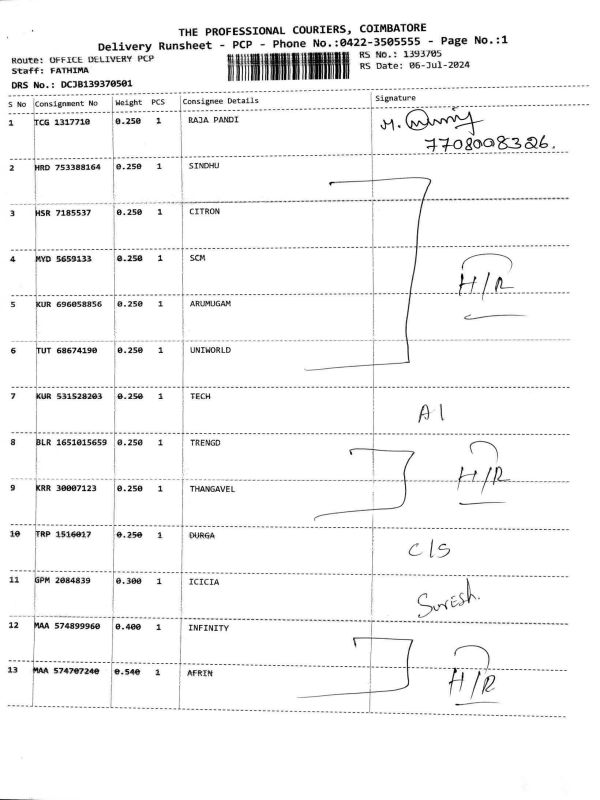 THE PROFESSIONAL COURIERS, COIMBATORE
Delivery Runsheet - PCP - Phone No.:0422-3505555 - Page No.:1
Route: OFFICE DELIVERY PCP
RS No.: 1393705
Staff: FATHIMA
RS Date: 06-Jul-2024
DRS No.: DCJB139370501
S No Consignment No Weight PCS Consignee Details Signature
1 TCG 1317710 0.250 1 RAJA PANDI M.
7708008326.
2 HRD 753388164 0.250 1 SINDHU
3 HSR 7185537 0.250 1 CITRON
4 MYD 5659133 0.250 1 SCM H/R
5 KUR 696058856 0.250 1 ARUMUGAM
6 TUT 68674190 0.250 1 UNIWORLD
7 KUR 531528203 0.250 1 TECH A1
8 BLR 1651015659 0.250 1 TRENGD H/R
9 KRR 30007123 0.250 1 THANGAVEL
10 TRP 1516017 0.250 1 DURGA C/S
11 GPM 2084839 0.300 1 ICICIA Suresh.
12 MAA 574899960 0.400 1 INFINITY
13 MAA 574707240 0.540 1 AFRIN H/R